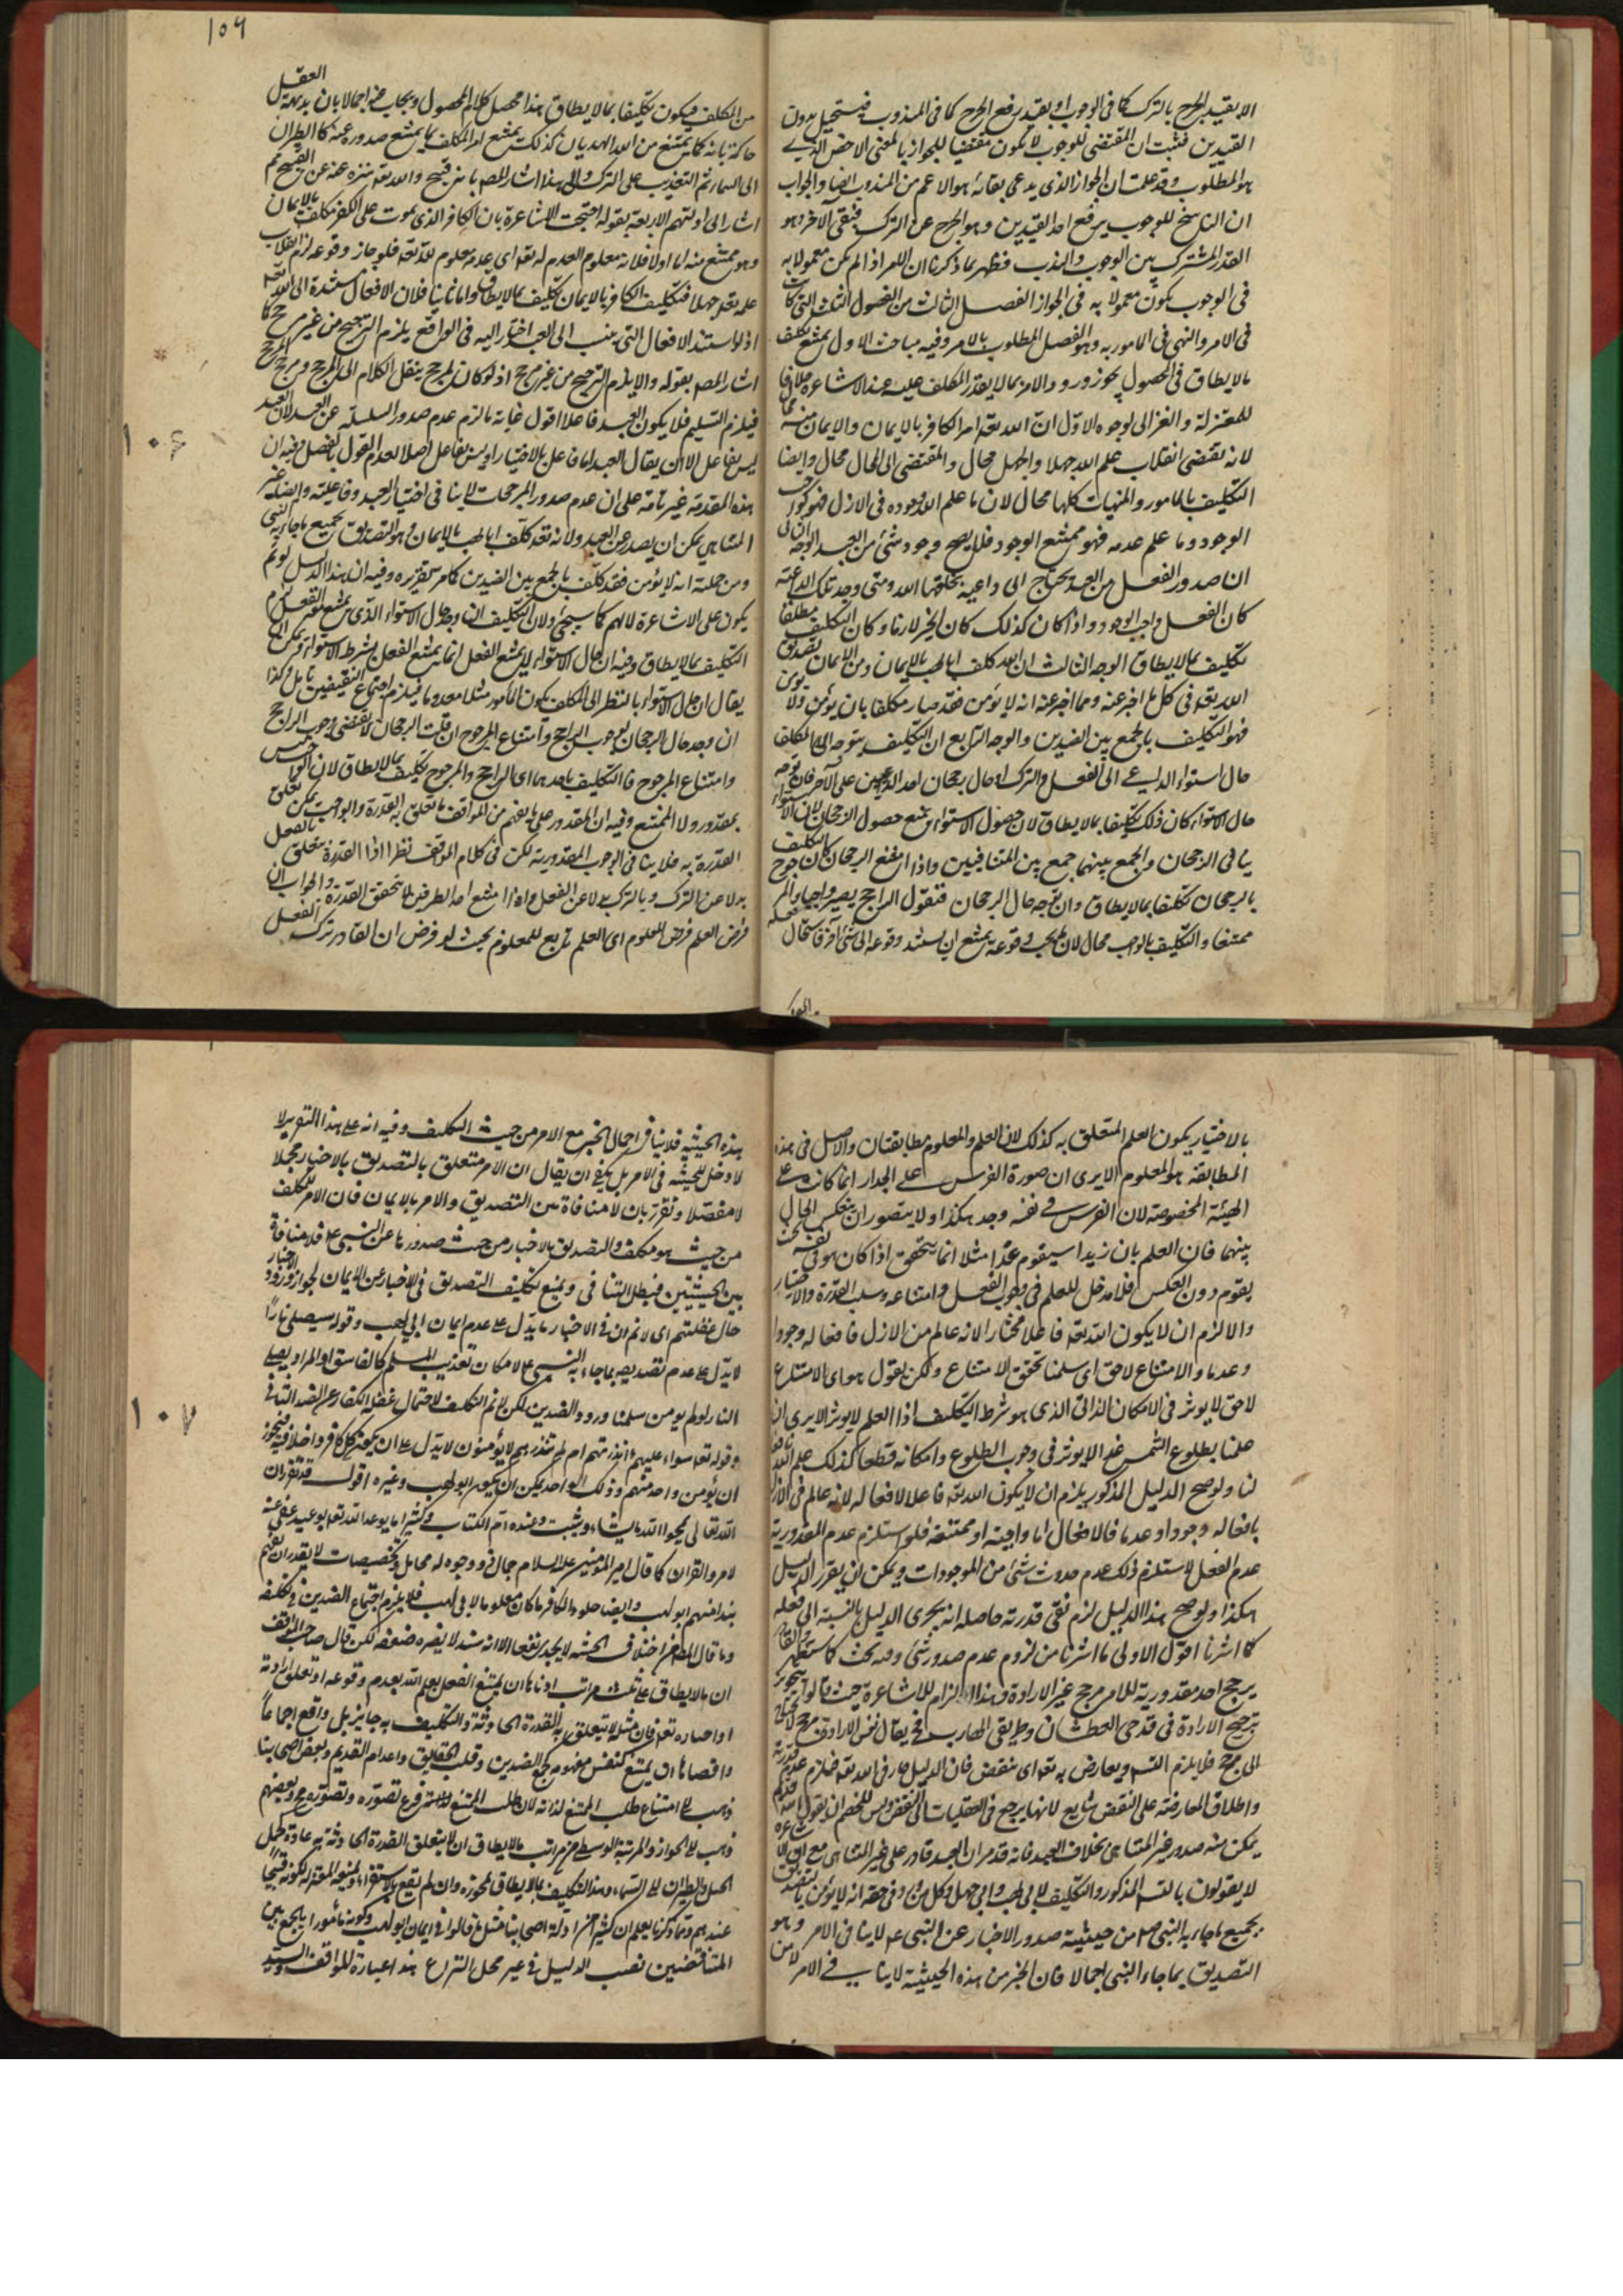 الا بقيد الحرج بالترك كما في الوجوب او بقيد رفع الحرج كما في المندوب فيستحيل بدون
القيدين فثبت ان المقتضى للوجوب لا يكون مقتضيا للجواز بالمعنى الاخص الذي
هو المطلوب وقد علمت ان الجواز الذي يدعى بقائه هو الاعم من المندوب ايضا والجواب
ان الناسخ للوجوب يرفع احد القيدين وهو الحرج عن الترك فيبقى الاخر وهو
القدر المشترك بين الوجوب والندب فظهر بما ذكرنا ان الامر اذا لم يكن معمولا به
في الوجوب يكون معمولا به في الجواز الفصل الثالث من الفصول الثلث التي كانت
في الامر والنهي في المامور به وهو الفصل المطلوب بالامر وفيه مباحث الاول يمتنع تكليف
ما لا يطاق في المحصول يجوز ورود الامر بما لا يقدر المكلف عليه عند الاشاعرة خلافا
للمعتزلة والغزالي لوجوه الاول ان الله تعه امر الكافر بالايمان والايمان منه
لانه يقتضى انقلاب علم الله جهلا والجهل محال والمقتضى الى المحال محال وايضا
التكليف بالمامور والمنهيات كلها محال لان ما علم الله وجوده في الازل فهو واجب
الوجود وما علم عدمه فهو ممتنع الوجود فلا يصح وجود شئ من العبد الوجه الثاني
ان صدور الفعل من العبد يحتاج الى داعية يخلقها الله ومتى وجد تلك الداعية
كان الفعل واجب الوجود واذا كان كذلك كان الجبر لازما وكان التكليف مطلقا
تكليف بما لا يطاق الوجه الثالث ان الله كلف ابا لهب بالايمان ومن الايمان تصديق
الله تعه في كل ما اخبر عنه ومما اخبر عنه انه لا يؤمن فقد صار مكلفا بان يؤمن ولا يؤمن
فهو التكليف بالجمع بين الضدين والوجه الرابع ان التكليف يتوجه الى المكلف
حال استواء الداعي الى الفعل والترك او حال رجحان احد الداعيين على الاخر فان توجه
حال الاستواء كان ذلك تكليفا بما لا يطاق لان حصول الاستواء يمنع حصول الرجحان لان الاستواء
ينافي الرجحان والجمع بينهما جمع بين المتنافيين واذا امتنع الرجحان كان التكليف
بالرجحان تكليفا بما لا يطاق وان توجه حال الرجحان فنقول الراجح يصير واجبا والمرجوح
ممتنعا والتكليف بالواجب محال لان ما يجب وقوعه يمتنع ان يستند وقوعه الى شئ اخر فاستحال
١٥٩
من المكلف فيكون تكليفا بما لا يطاق هذا محصل كلام المحصول ويجاب عنه اجمالا بان بديهة العقل
حاكمة بانه كما يمتنع من الله الهذيان كذلك يمتنع امر المكلف بما يمتنع صدوره عنه كالطيران
الى السماء ثم التعذيب على الترك والى هذا اشار المصه بانه قبيح والله تعه منزه عنه عن القبيح ثم
اشار الى ادلتهم الاربعة بقوله احتجت الاشاعرة بان الكافر الذي يموت على الكفر مكلف بالايمان
وهو ممتنع منه اما اولا فلانه معلوم العدم له تعه اي عدمه معلوم لله تعه فلو جاز وقوعه لزم انقلاب
علمه تعه جهلا فتكليف الكافر بالايمان تكليف بما لا يطاق واما ثانيا فلان الافعال مستندة الى الله تعه
اذ لو استند الافعال التي ينسب الى العبد اختيار اليه في الواقع يلزم الترجيح من غير مرجح كما
اشار المصه بقوله والا يلزم الترجيح من غير مرجح اذ لو كان لمرجح ينقل الكلام الى المرجح ومرجح المرجح
فيلزم التسلسل فلا يكون العبد فاعلا اقول غاية ما لزم عدم صدور السلسلة عن العبد لان العبد
ليس بفاعل الا ان يقال العبد اما فاعل بالاختيار او ليس بفاعل اصلا لعدم القول بالفصل وفيه ان
هذه المقدمة غير تامة على ان عدم صدور المرجحات لا ينافي اختيار العبد وفاعليته وايضا غير
المتناهي يمكن ان يصدر عن العبد ولانه تعه كلف ابا لهب بالايمان وهو التصديق بجميع ما جاء به النبي
ومن جملته انه لا يؤمن فقد كلف بالجمع بين الضدين كما مر تقريره وفيه ان هذا الدليل لو تم
يكون على الاشاعرة لا لهم كما سيجئ ولان التكليف ان وجد حال الاستواء الذي يمتنع الفعل لزم
التكليف بما لا يطاق وفيه ان حال الاستواء لا يمتنع الفعل انما يمتنع الفعل بشرط الاستواء
ان وجد حال الرجحان لوجوب الراجح وامتناع المرجوح ان قلت الرجحان لا يقتضى وجوب الراجح
وامتناع المرجوح فالتكليف باحدهما اي الراجح والمرجوح تكليف بما لا يطاق لان الواجب ليس
بمقدور ولا الممتنع وفيه ان المقدور على ما يفهم من المواقف ما تعلق به القدرة والواجب يمكن تعلق
القدرة به فلا ينافي الوجوب المقدورية لكن في كلام المواقف نظر اذا القدرة يتعلق بالفعل
بدلا عن الترك وبالترك بدلا عن الفعل واذا امتنع احد الطرفين لا يتحقق القدرة والجواب ان
فرض العلم فرض للمعلوم اي العلم تابع للمعلوم بحيث لو فرض ان القادر ترك الفعل
١٠٦
بالاختيار يكون العلم المتعلق به كذلك لان العلم والمعلوم مطابقتان والاصل في هذه
المطابقة هو المعلوم الا يرى ان صورة الفرس على الجدار انما كانت على
الهيئة المخصوصة لان الفرس في نفسه وجد هكذا ولا يتصور ان ينعكس الحال
بينهما فان العلم بان زيدا سيقوم غدا مثلا انما يتحقق اذا كان هو في نفسه بحيث
يقوم دون العكس فلا مدخل للعلم في وجوب الفعل وامتناعه وسلب القدرة والاختيار
والا لزم ان لا يكون الله تعه فاعلا مختارا لانه عالم من الازل فافعاله وجودا
وعدما والامتناع لاحق اي سلمنا تحقق الامتناع ولكن نقول هو اي الامتناع
لاحق لا يوثر في الامكان الذاتي الذي هو شرط التكليف اذا العلم لا يوثر الا يرى ان
علمنا بطلوع الشمس غدا لا يوثر في وجوب الطلوع وامكانه قطعا كذلك علم الله
لنا ولو صح الدليل المذكور يلزم ان لا يكون الله تعه فاعلا لافعاله لانه عالم في الازل
بافعاله وجودا وعدما فالافعال اما واجبة او ممتنعة فلو استلزم عدم المقدورية
عدم الفعل لاستلزم ذلك عدم حدوث شئ من الموجودات ويمكن ان يقرر الدليل
هكذا ولو صح هذا الدليل لزم نفي قدرته حاصله انه يجرى الدليل بالنسبة الى فعله
كما اشرنا اقول الاولى ما اشرنا من لزوم عدم صدور شئ
يرجح احد مقدورية للامر مرجح غير الارادة وهذا الزام للاشاعرة حيث قالوا
ترجيح الارادة في قدحى العطشان وطريقى الهارب فح يقال نفس الارادة مرجح لا يحتاج
الى مرجح فلا يلزم التسه ويعارض به تعه اي ينقض فان الدليل جار في الله تعه فيلزم عدم قدرته
واطلاق المعارضة على النقض شايع لانها يرجع في العقليات الى النقض وليس للخصم ان يقول
يمكن منه صدور غير المتناهى بخلاف العبد فانه قد مر ان العبد قادر على غير المتناهى
لا يقولون بالتسه المذكور والتكليف لابي لهب وابي جهل وفي حقه انه لا يؤمن بالتصديق
بجميع ما جاء به النبي صم من حيثية صدور الاخبار عن النبي عم لا ينافي الامر وهو
التصديق بما جاء النبي اجمالا فان الخبر من هذه الحيثية لا ينافي الامر لا من
هذه الحيثية فلا ينافي اجمال الخبر مع الامر من حيث التكليف وفيه انه على هذا التقرير لا
لا دخل للحيثية في الامر بل يكفي ان يقال ان الامر متعلق بالتصديق بالاخبار مجملا
لا مفصلا ونقرر بان لا منافاة بين التصديق والامر بالايمان فان الامر للمكلف
من حيث هو مكلف والتصديق بالاخبار من حيث صدورها عن النبي عم فلا منافاة
بين الحيثيتين فبطل التنافي ويمنع تكليف التصديق في الاخبار عن الايمان لجواز ورود الاخبار
حال غفلتهم اي لا نم ان في الاخبار ما يدل على عدم ايمان ابي لهب وقوله سيصلى نارا
لا يدل على عدم تصديقه بما جاء به النبي عم لامكان تعذيب المسلم كالفاسق او المراد يصلى
النار لو لم يومن سلمنا ورود الضدين لكن لا نم التكليف لاحتمال غفلة الكفار عن الضد الثاني
وقوله تعه سواء عليهم ءانذرتهم ام لم تنذرهم لا يؤمنون لا يدل على ان يكون كل كافر داخلا فيه فيجوز
ان يؤمن واحد منهم وذلك الواحد يمكن ان يكون ابو لهب وغيره اقول قد تقرر ان
الله تعالى يمحوا الله ما يشاء ويثبت وعنده ام الكتاب وكثيرا ما يوعد الله تعه بوعيد
لامر والقران كما قال امير المؤمنين عليه السلام حمال ذو وجوه له محامل وتخصيصات لا يقدر ان يفهم
ابو لهب وايضا خلود الكافر ما كان معلوما لابي لهب فلا يلزم اجتماع الضدين في تكليفه
وما قال المصه من اختلاف الحيثية لا يجدى نفعا الا انه سند لا يضره ضعفه لكن قال صاحب المواقف
ان ما لا يطاق على ثلث مراتب ادناها ان يمتنع الفعل بعلم الله بعدم وقوعه او تعلق ارادته
او اخباره تعه فان مثله لا يتعلق به القدرة الحادثة والتكليف به جايز بل واقع اجماعا
واقصاها ان يمتنع لنفس مفهومه كجمع الضدين وقلب الحقايق واعدام القديم وبعض اصحابنا
ذهب الى امتناع طلب الممتنع لذاته لان طلب الممتنع فرع تصوره وتصوره مح وبعضهم
ذهب الى الجواز والمرتبة الوسطى من مراتب ما لا يطاق ان لا يتعلق القدرة الحادثة به عادة كحمل
الجبل والطيران الى السماء وهذا التكليف بما لا يطاق نجوزه وان لم يقع بالاستقراء ويمنعه المعتزلة لكونه قبيحا
عندهم وبما ذكرنا يعلم ان كثيرا من ادلة اصحابنا مثل ما قالوا في ايمان ابو لهب وكونه مأمورا بالجمع بين
المتناقضين نصب الدليل في غير محل النزاع هذه عبارة المواقف والسيد
١٠٧